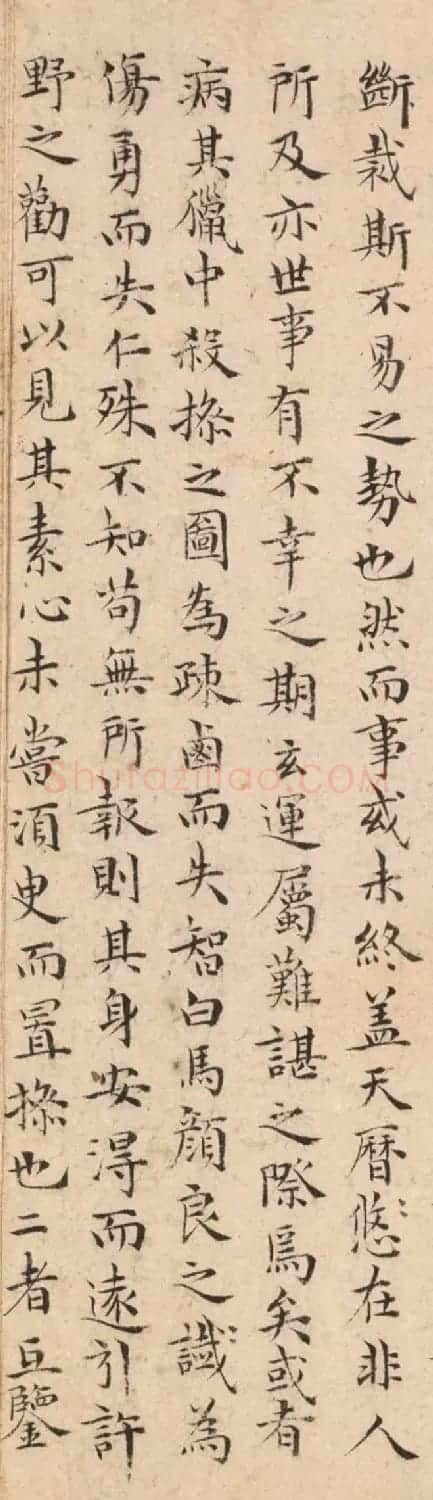 斷裁斯不易之勢也然而事或未終蓋天曆悠在非人
所及亦世事有不幸之期玄運屬難諶之際焉矣或者
病其獵中殺操之圖為疎鹵而失智白馬顏良之誡為
傷勇而失仁殊不知苟無所報則其身安淂而遠引許
野之勸可以見其素心未嘗湏臾而置操也二者互鑒